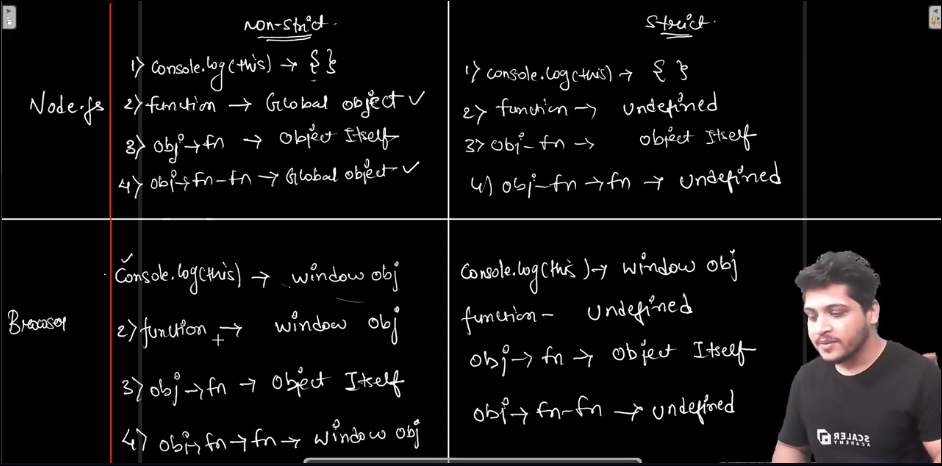 non-strict.
Strict.
Node.js
1) console.log(this) → { }
2) function → Global object ✓
3) obj → fn → Object Itself
4) obj → fn - fn → Global object ✓
1) console.log(this) → { }
2) function → undefined
3) obj - fn → object Itself
4) obj - fn → fn → undefined
Browser
✓
Console.log(this) → window obj
2) function → window obj
3) obj → fn → Object Itself
4) obj → fn → fn → window obj
console.log(this) → window obj
function - undefined
obj → fn → Object Itself
obj → fn - fn → undefined
SCALER
ACADEMY